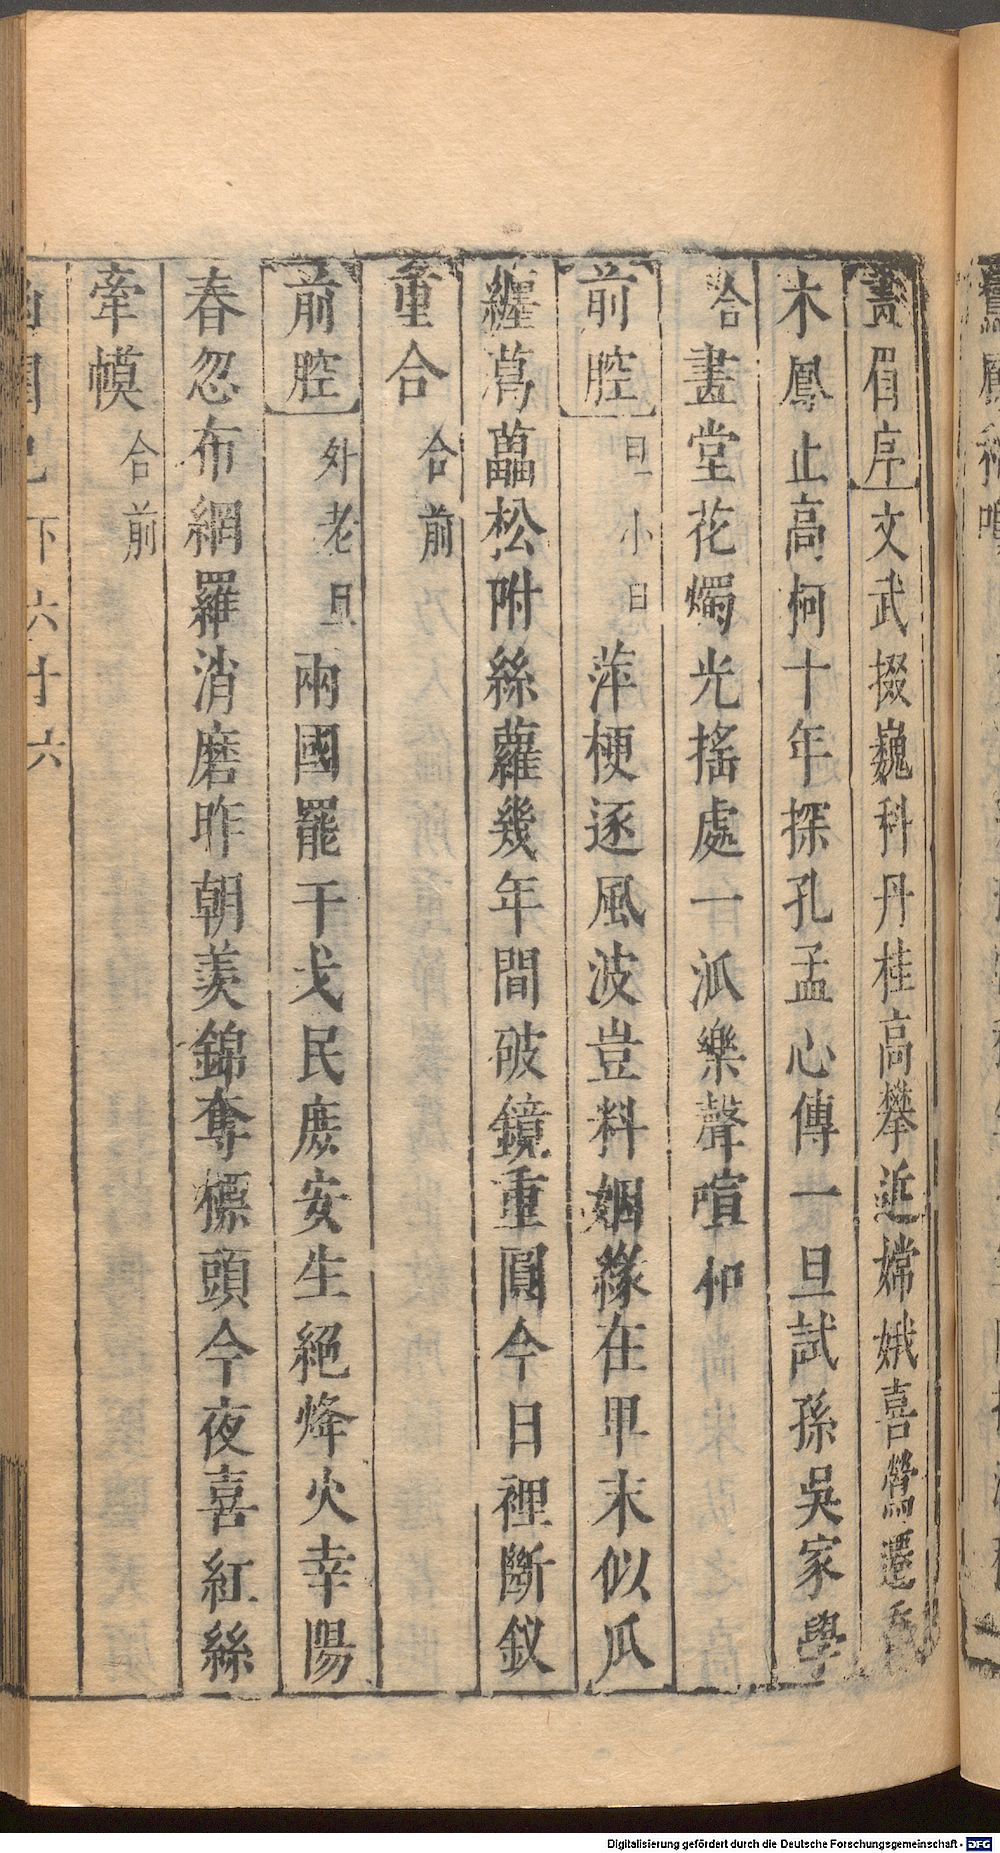 畫眉序文武掇巍科丹桂高攀近嫦娥喜鶯遷喬
木鳳止高柯十年探孔孟心傳一旦試孫吳家學
合畫堂花燭光搖處一派樂聲喧和
前腔旦小旦萍梗逐風波豈料姻緣在甲末似瓜
纏葛藟松附絲蘿幾年間破鏡重圓今日裡斷釵
重合合前
前腔外老旦兩國罷干戈民庶安生絕烽火幸陽
春忽布網羅消磨昨朝羨錦奪標頭今夜喜紅絲
牽幙合前
幽閨記下六十六
Digitalisierung gefördert durch die Deutsche Forschungsgemeinschaft - DFG